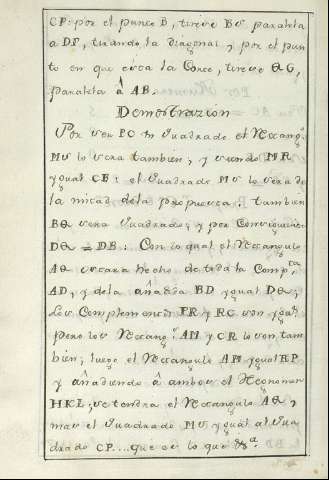 CP: por el punto B, tirese BS paralela
a DP, tirando la diagonal y por el pun
to en que corta la      , tirese QG,
paralela à AB.
Demostrazion
Por ser PC un Quadrado el Rectang.º
MS lo sera tambien; y siendo MR
ygual CB: el Quadrado MS lo sera de
la mitad dela propuesta: tambien
BQ sera Quadrado, y por Consiguiente
DQ = DB: Con lo qual el Rectangulo
AQ estara hecho de toda la Comp.ta
AD, y dela añadida BD ygual DQ,
Los Complementos PR y RC son yguals
pero los Rectang.s AM y CR lo son tam
bien; luego el Rectangulo AM ygual RP
y añadiendo à ambos el Gnomon
HKL, se tendra el Rectangulo AQ,
mas el Quadrado MS ygual al Qua
drado CP.... que es lo que &.a